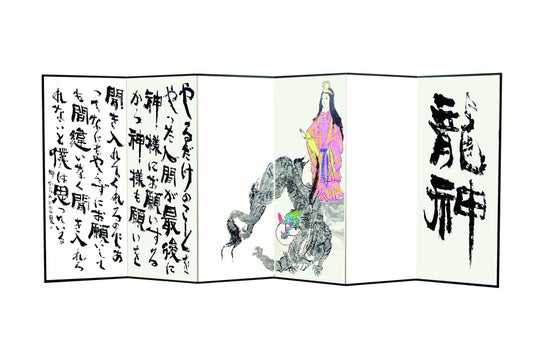 龍神
やるだけのことを
やった人間が最後に
神様にお願いする
から神様も願いを
聞き入れてくれるのであ
ってなにもやらずにお願いして
も間違いなく聞き入れら
れないと僕は思っている